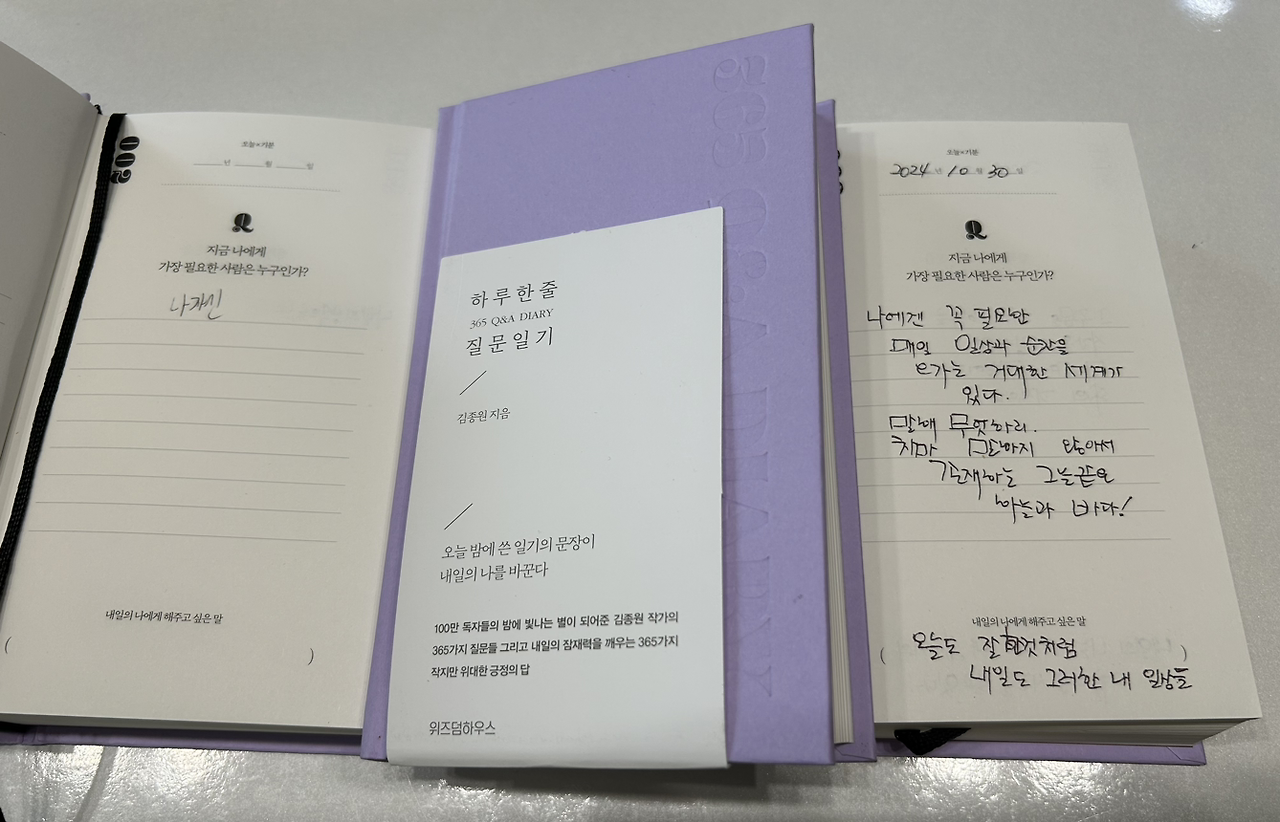 002
오늘×기분
년 월 일
Q
지금 나에게
가장 필요한 사람은 누구인가?
나 자신
내일의 나에게 해주고 싶은 말
( )
365 Q&A DIARY
하루 한 줄
365 Q&A DIARY
질문 일기
김종원 지음
오늘 밤에 쓴 일기의 문장이
내일의 나를 바꾼다
100만 독자들의 밤에 빛나는 별이 되어준 김종원 작가의
365가지 질문들 그리고 내일의 잠재력을 깨우는 365가지
작지만 위대한 긍정의 답
위즈덤하우스
오늘×기분
2024년 10월 30일
Q
지금 나에게
가장 필요한 사람은 누구인가?
나에겐 꼭 필요한
매일 일상과 순간을
오가는 거대한 세계가
있다.
말해 무엇하리.
차마 말하지 않아서
존재하는
하늘과 바다!
내일의 나에게 해주고 싶은 말
( 오늘도 잘 한것처럼 )
내일도 그러한 내 일상들